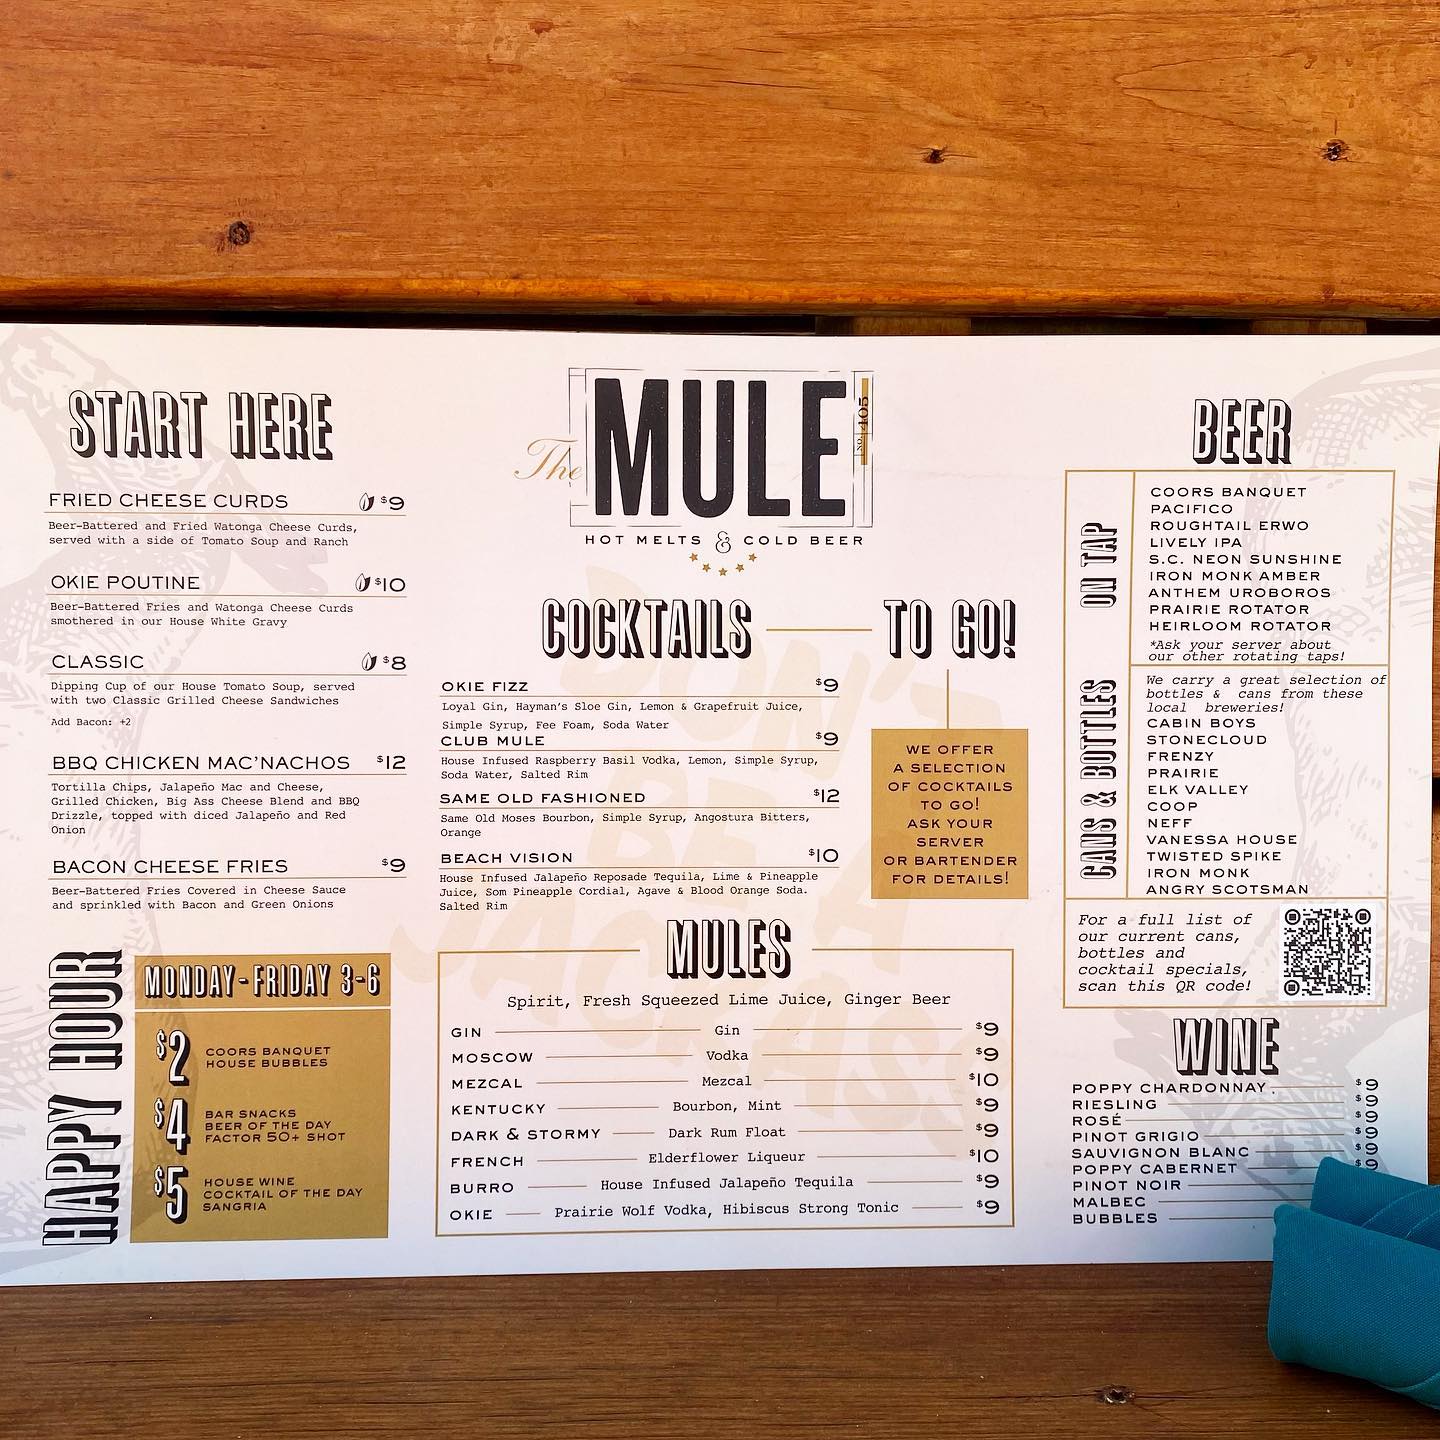 START HERE
FRIED CHEESE CURDS $9
Beer-Battered and Fried Watonga Cheese Curds,
served with a side of Tomato Soup and Ranch
OKIE POUTINE $10
Beer-Battered Fries and Watonga Cheese Curds
smothered in our House White Gravy
CLASSIC $8
Dipping Cup of our House Tomato Soup, served
with two Classic Grilled Cheese Sandwiches
Add Bacon: +2
BBQ CHICKEN MAC'NACHOS $12
Tortilla Chips, Jalapeño Mac and Cheese,
Grilled Chicken, Big Ass Cheese Blend and BBQ
Drizzle, topped with diced Jalapeño and Red
Onion
BACON CHEESE FRIES $9
Beer-Battered Fries Covered in Cheese Sauce
and sprinkled with Bacon and Green Onions
HAPPY HOUR
MONDAY-FRIDAY 3-6
$2
COORS BANQUET
HOUSE BUBBLES
$4
BAR SNACKS
BEER OF THE DAY
FACTOR 50+ SHOT
$5
HOUSE WINE
COCKTAIL OF THE DAY
SANGRIA
The MULE NO. 405
HOT MELTS & COLD BEER
DON'T
BE A
JACKASS
COCKTAILS
OKIE FIZZ $9
Loyal Gin, Hayman's Sloe Gin, Lemon & Grapefruit Juice,
Simple Syrup, Fee Foam, Soda Water
CLUB MULE $9
House Infused Raspberry Basil Vodka, Lemon, Simple Syrup,
Soda Water, Salted Rim
SAME OLD FASHIONED $12
Same Old Moses Bourbon, Simple Syrup, Angostura Bitters,
Orange
BEACH VISION $10
House Infused Jalapeño Reposade Tequila, Lime & Pineapple
Juice, Som Pineapple Cordial, Agave & Blood Orange Soda.
Salted Rim
TO GO!
WE OFFER
A SELECTION
OF COCKTAILS
TO GO!
ASK YOUR
SERVER
OR BARTENDER
FOR DETAILS!
MULES
Spirit, Fresh Squeezed Lime Juice, Ginger Beer
GIN Gin $9
MOSCOW Vodka $9
MEZCAL Mezcal $10
KENTUCKY Bourbon, Mint $9
DARK & STORMY Dark Rum Float $9
FRENCH Elderflower Liqueur $10
BURRO House Infused Jalapeño Tequila $9
OKIE Prairie Wolf Vodka, Hibiscus Strong Tonic $9
BEER
ON TAP
COORS BANQUET
PACIFICO
ROUGHTAIL ERWO
LIVELY IPA
S.C. NEON SUNSHINE
IRON MONK AMBER
ANTHEM UROBOROS
PRAIRIE ROTATOR
HEIRLOOM ROTATOR
*Ask your server about
our other rotating taps!
CANS & BOTTLES
We carry a great selection of
bottles & cans from these
local breweries!
CABIN BOYS
STONECLOUD
FRENZY
PRAIRIE
ELK VALLEY
COOP
NEFF
VANESSA HOUSE
TWISTED SPIKE
IRON MONK
ANGRY SCOTSMAN
For a full list of
our current cans,
bottles and
cocktail specials,
scan this QR code!
WINE
POPPY CHARDONNAY. $9
RIESLING $9
ROSÉ $9
PINOT GRIGIO $9
SAUVIGNON BLANC $9
POPPY CABERNET $9
PINOT NOIR
MALBEC
BUBBLES